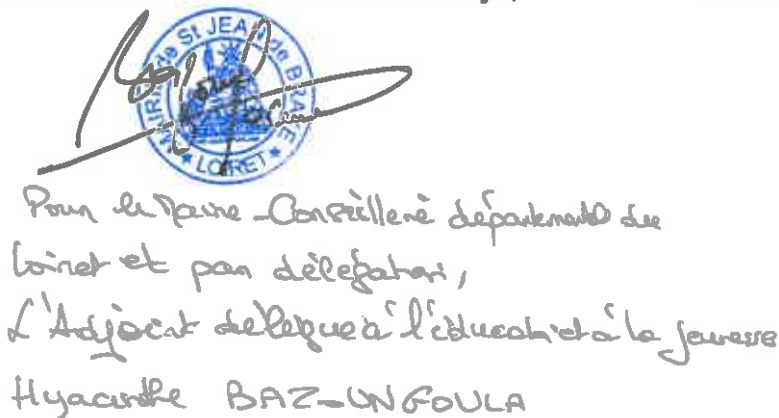 MAIRIE de St JEAN de BRAYE
★ LOIRET ★
Pour le Maire - Conseillère départementale du
Loiret et par délégation,
L'Adjoint délégué à l'éducation et à la jeunesse
Hyacinthe BAZOUNGOULA